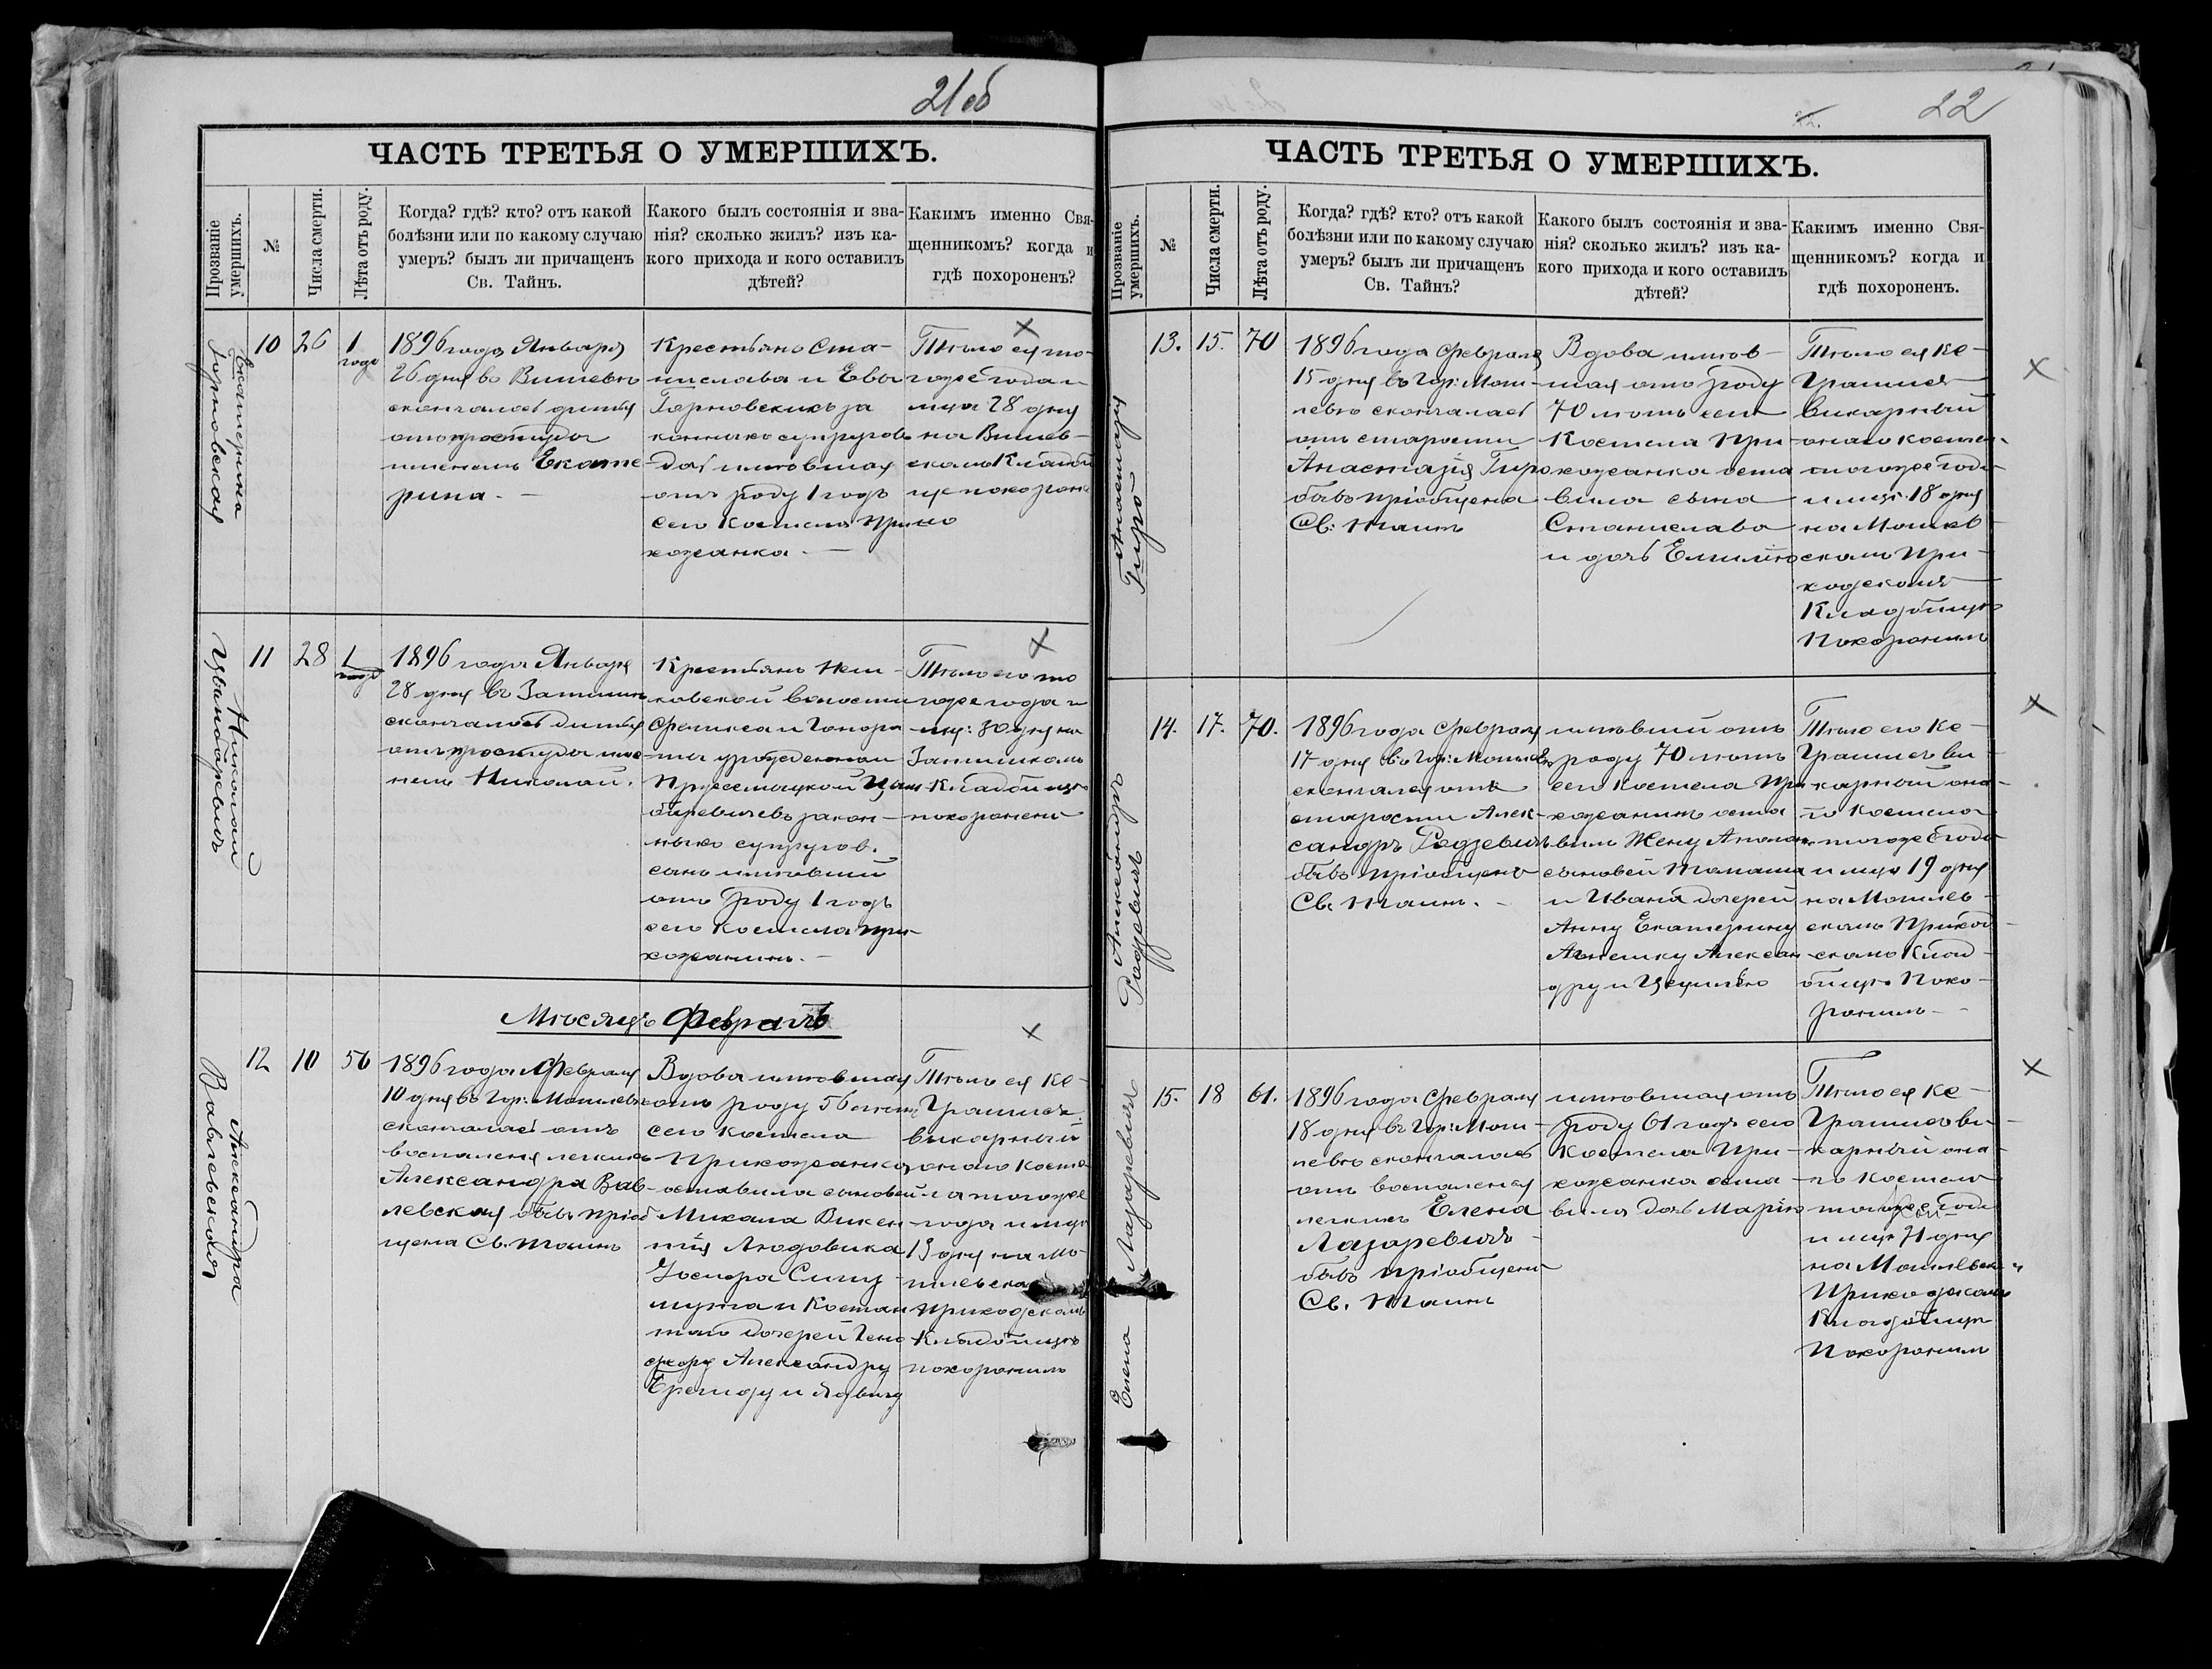 21об
ЧАСТЬ ТРЕТЬЯ О УМЕРШИХЪ.
Прозваніе умершихъ.
№
Числа смерти.
Лѣта отъ роду.
Когда? гдѣ? кто? отъ какой
болѣзни или по какому случаю
умеръ? былъ ли причащенъ
Св. Тайнъ.
Какого былъ состоянія и зва-
нія? сколько жилъ? изъ ка-
кого прихода и кого оставилъ
дѣтей?
Какимъ именно Свя-
щенникомъ? когда и
гдѣ похороненъ?
Екатерина
10
26
1
годъ
1896 года Января
26 дня въ
скончалось дитя
отъ простуды
именемъ Екате-
рина.
Крестьянъ Ста-
нислава и Евы
за
конныхъ супруговъ
дочь имѣвшая
отъ роду 1 годъ
сего Костела при
хожанка.
Тѣло ея то-
гоже года и
мца 28 дня
на
скомъ Кладби
ще похороне
но
Николай
11
28
1
годъ
1896 года Января
28 дня въ
скончалось дитя
отъ простуды име-
немъ Николай.
Крестьянъ
волости
Феликса и Гонора-
ты урожденной
законъ-
ныхъ супругов.
сынъ имѣвший
отъ роду 1 годъ
сего Костела при-
хожанинъ.
Тѣло его то
гоже года и
мца: 30 дня на
Кладбище
похоронено
Мѣсяцъ Февраль
Александра
Вавлевская
12
10
56
1896 года Февраля
10 дня въ Гор: Могилевѣ
скончалась отъ
воспаленія легкихъ
Александра Вав-
левская бывъ пріоб
щена Св. Таинъ
Вдова имѣвшая
отъ роду 56 лѣтъ
сего Костела
Прихожанка
оставила сыновей
Михала Викен-
тія Людовика
и Костан
тыю дочерей Тео
фору Александру
и Ядвигу
Тѣло ея Ке-
Грашись
викарный
онаго Косте-
ла тогоже
года и мца
13 дня на Мо-
гилевскомъ
Приходскомъ
Кладбищѣ
похоронилъ
22
ЧАСТЬ ТРЕТЬЯ О УМЕРШИХЪ.
Прозваніе умершихъ.
№
Числа смерти.
Лѣта отъ роду.
Когда? гдѣ? кто? отъ какой
болѣзни или по какому случаю
умеръ? былъ ли причащенъ
Св. Тайнъ?
Какого былъ состоянія и зва-
нія? сколько жилъ? изъ ка-
кого прихода и кого оставилъ
дѣтей?
Какимъ именно Свя-
щенникомъ? когда и
гдѣ похороненъ.
Анастазія
Гиро
13.
15.
70
1896 года Февраля
15 дня въ Гор: Моги-
левѣ скончалась
отъ старости
Анастазія Гиро
бывъ пріобщена
Св: Таинъ
Вдова имѣв-
шая отъ роду
70 лѣтъ сего
Костела При-
хожанка оста
вила сына
Станислава
и дочь Емилію
Тѣло ея Ке-
Грашись
Викарный
онаго Костел.
тогоже года
и мца 18 дня
на Могилев-
скомъ При-
ходскомъ
Кладбищѣ
Похоронилъ
Александръ
Радзевичъ
14.
17.
70.
1896 года Февраля
17 дня въ Гор: Могилевѣ
скончался отъ
старости Алек-
сандръ Радзевичъ
бывъ пріобщенъ
Св. Таинъ.
имѣвший отъ
роду 70 лѣтъ
сего Костела При
хожанинъ оста
вилъ Жену
сыновей Томаша
и Ивана дочерей
Анну Екатерину
Агнешку Алексан
дру и Цецилію
Тѣло его Ке-
Грашись ви-
карный она-
го Костела
тогоже года
и мца 19 дня
на Могилев-
скомъ Приход-
скомъ Клад-
бищѣ Похо-
ронилъ
Елена Лазаревичъ
15.
18
61.
1896 года Февраля
18 дня въ Гор: Моги-
левѣ скончалась
отъ воспаленія
легкихъ Елена
Лазаревичъ
бывъ пріобщена
Св. Таинъ
имѣвшая отъ
роду 61 годъ сего
Костела При-
хожанка оста-
вила дочь Марію
Тѣло ея Ке-
Грашись ви-
карный она-
го Костела
тогоже года
и мца 21 дня
на Могилевск
Приходскомъ
Кладбищѣ
Похоронилъ